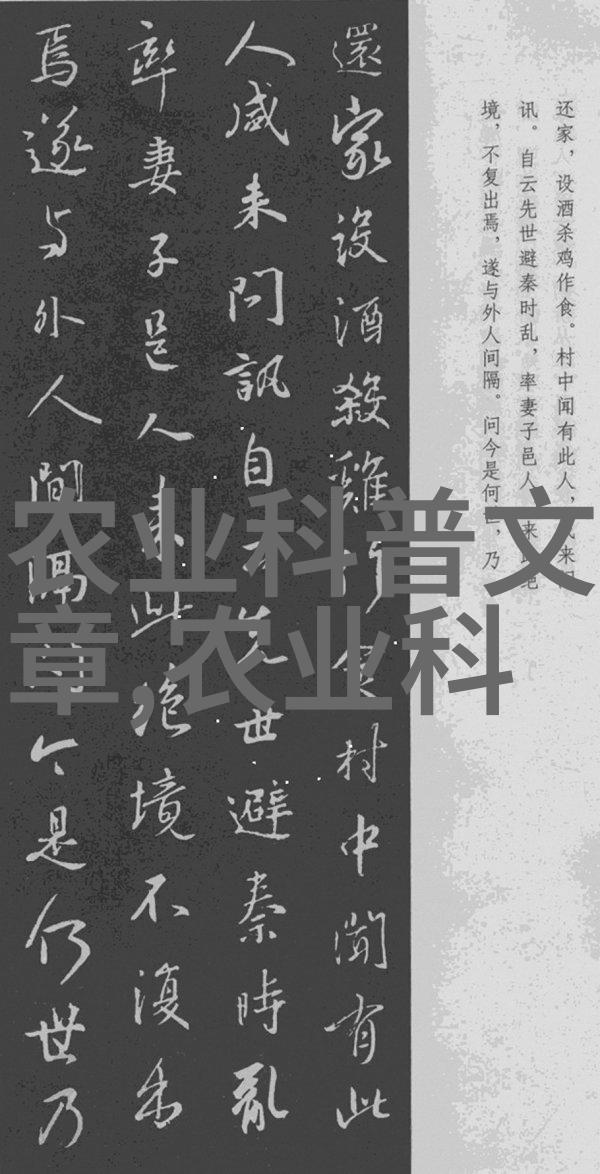 还家，设酒杀鸡作食。村中闻有此人，来
讯。自云先世避秦时乱，率妻子邑人来此绝
境，不复出焉，遂与外人间隔。问今是何世，乃
還家設酒殺雞作食村中聞有此
人咸来問訊自云先世避秦時亂
率妻子邑人来此絶境不復出
焉遂与外人間隔問今是何世乃
农业科普文
章,农业科